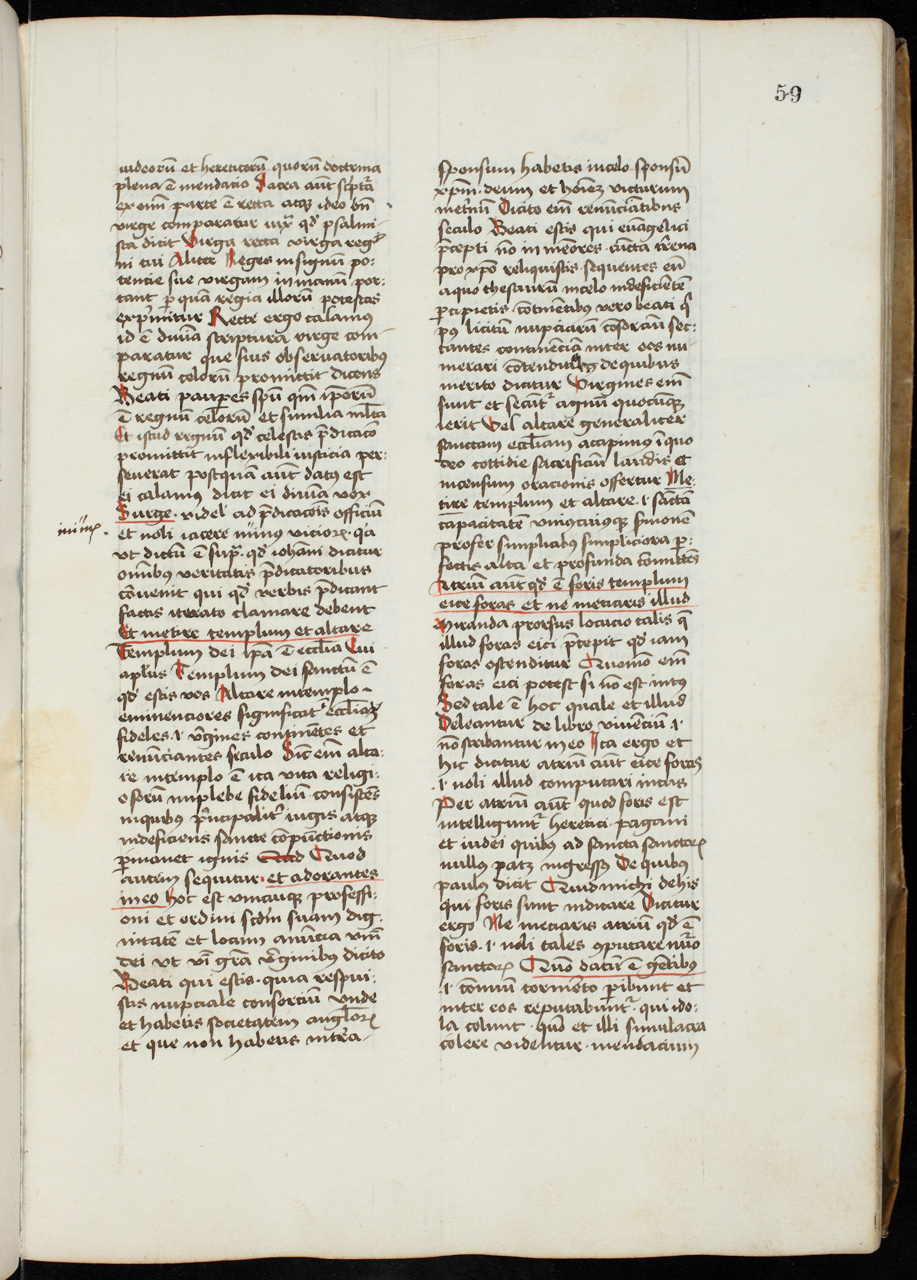 59
iudeorū et hereticorū quorū doctrina
plena ē mendacio Sacra aūt sc̄ptᷓa
ex omī parte ē recta atqꝫ ideo bn̄
virge comparatur iuxᷓ qd̓ psalmi-
sta dicit Virga recta virga reḡ
ni tui Aliter Reges in signum po:
tentie sue virgam in manu por:
tant ꝑ quā regia illorū potestas
exp̓mitur Recte ergo calamus
id ē diuīa scriptura virge com
paratur que suis obseruatoribus
regnū celorū promittit dicens
Beati pauꝑes spū qm̄ ip̄orū
ē regnū celorū et similia ml̄ta
Et istud regnū qd̓ celestis p̄dicac̄o
promittit inflexibili iusticia per:
seuerat postquā aūt datꝰ est
ei calamus dicit ei diuīa vox
Surge · videlꝫ ad p̄dicacōis officiū
et noli iacere viciorꝝ · qᷓ
vt dictū ē supᷓ · qd̓ iohāni dicitur
omībus veritatis p̄dicatoribus
cōuenit qui qd̓ verbis p̄dicant
factis iterato clamare debent
Et metire templum et altare
Templum dei sp̄ā ē eccl̄ia Cui
apl̄us Templum dei sanctū ē
qd̓ estis vos Altare in templo
eminenciores significat᷑ ecclīaꝫ
fideles · i · v̓gines continētes et
renūciantes seculo Sic em̄ alta:
re in templo ē ita vita religi:
osorū in plebe fidelium consistēs
in quibus p̓ncipalit᷑ iugis atqꝫ
indeficiens sancte cōpūctionis
ꝑmanet ignis Quod
autem sequitur · et adorantes
in eo hoc est vnicuiqꝫ professi:
oni et ordini sc̄dm suam dig:
nitatē et locum anūcia vm̄
dei vt vi grā v̓ginibus dicito
Beati qui estis · quia respui:
stis nupciale consorciū vnde
et habetis societatem angl̄orꝝ
et que non habetis in tr̄a
Sponsum habetis in celo sponsū
xp̄m · deum et hoīeꝫ victurum
in et̓nū Dicito em̄ renūciātibus
seculo Beati estis qui euāgelici
p̄cepti nō in memores · cūcta tr̄ena
pro xp̄o reliquistis · sequentes eū
a quo thesaurū in celo indeficiētē
ꝑcipietis · cōtinētibus vero beati qͥ
pꝰ licitū nupciarū cōsorciū sec:
tantes continēciā inter eos nu
merari cōtenditis de quibus
merito dicitur Virgines em̄
sunt et secūt᷑ agnū quocūqꝫ
ierit Vel altare generaliter
sanctam eccl̄iam accipimꝰ ī quo
deo cottidie sacrificiū laudis et
incensum orationis offertur Me:
tire templum et altare · i · sanctā
capacitatē vniuscuiusqꝫ s̄monē
profer simplicibꝰ simpliciora ꝑ:
fectis alta et profunda cōmittēs
Atriū aūt qd̓ ē foris templum
eice foras et ne meciaris illud
Miranda prorsus locucio talis qᷓ
illud foras eici p̄cepit qd̓ iam
foras ostenditur Quomō em̄
foras eici potest si nō est intꝰ
Sed tale ē hoc quale et illud
Deleantur de libro viuēcium ·
nō scribantur in eo Ita ergo et
hic dicitur atriū aūt eice foras
· i · noli illud computari intus
Per atriū aūt quod foris est
intelligunt᷑ heretici · pagani
et iudei quibꝰ ad sancta sanctorꝝ
nullus patꝫ ingressꝰ De quibus
paulus dicit Quid michi de his
qui foris sunt iudicare Dicitur
ergo Ne meciaris atriū qd̓ ē
foris · i · noli tales cōputare nūo
sanctorꝝ Quō datū ē gētibus
· i · cōmuī tormēto ꝑibunt et
inter eos reputabunt᷑ · qui ido:
la colunt · qūo et illi simulacra
colere videntur · mendacium